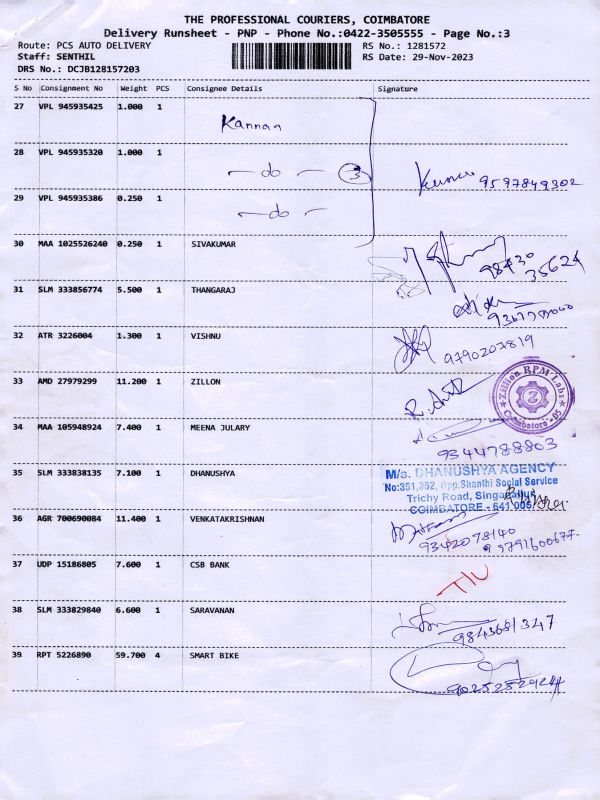 THE PROFESSIONAL COURIERS, COIMBATORE
Delivery Runsheet - PNP - Phone No.:0422-3505555 - Page No.:3
Route: PCS AUTO DELIVERY RS No.: 1281572
Staff: SENTHIL RS Date: 29-Nov-2023
DRS No.: DCJB128157203
S No Consignment No Weight PCS Consignee Details Signature
27 VPL 945935425 1.000 1 Kannan
28 VPL 945935320 1.000 1 -do- 3
9597849302
29 VPL 945935386 0.250 1 -do-
30 MAA 1025526240 0.250 1 SIVAKUMAR
98430
35624
31 SLM 333856774 5.500 1 THANGARAJ
32 ATR 3226004 1.300 1 VISHNU
9790207819
33 AMD 27979299 11.200 1 ZILLON
Zillion RPM Labs
Z
Coimbatore - 05
34 MAA 105948924 7.400 1 MEENA JULARY
9344788803
35 SLM 333838135 7.100 1 DHANUSHYA
M/s. DHANUSHYA AGENCY
No:351,352, Opp.Shanthi Social Service
Trichy Road, Singanallur
COIMBATORE - 641 005
36 AGR 700690084 11.400 1 VENKATAKRISHNAN
9342078140
37 UDP 15186805 7.600 1 CSB BANK
38 SLM 333829840 6.600 1 SARAVANAN
39 RPT 5226890 59.700 4 SMART BIKE